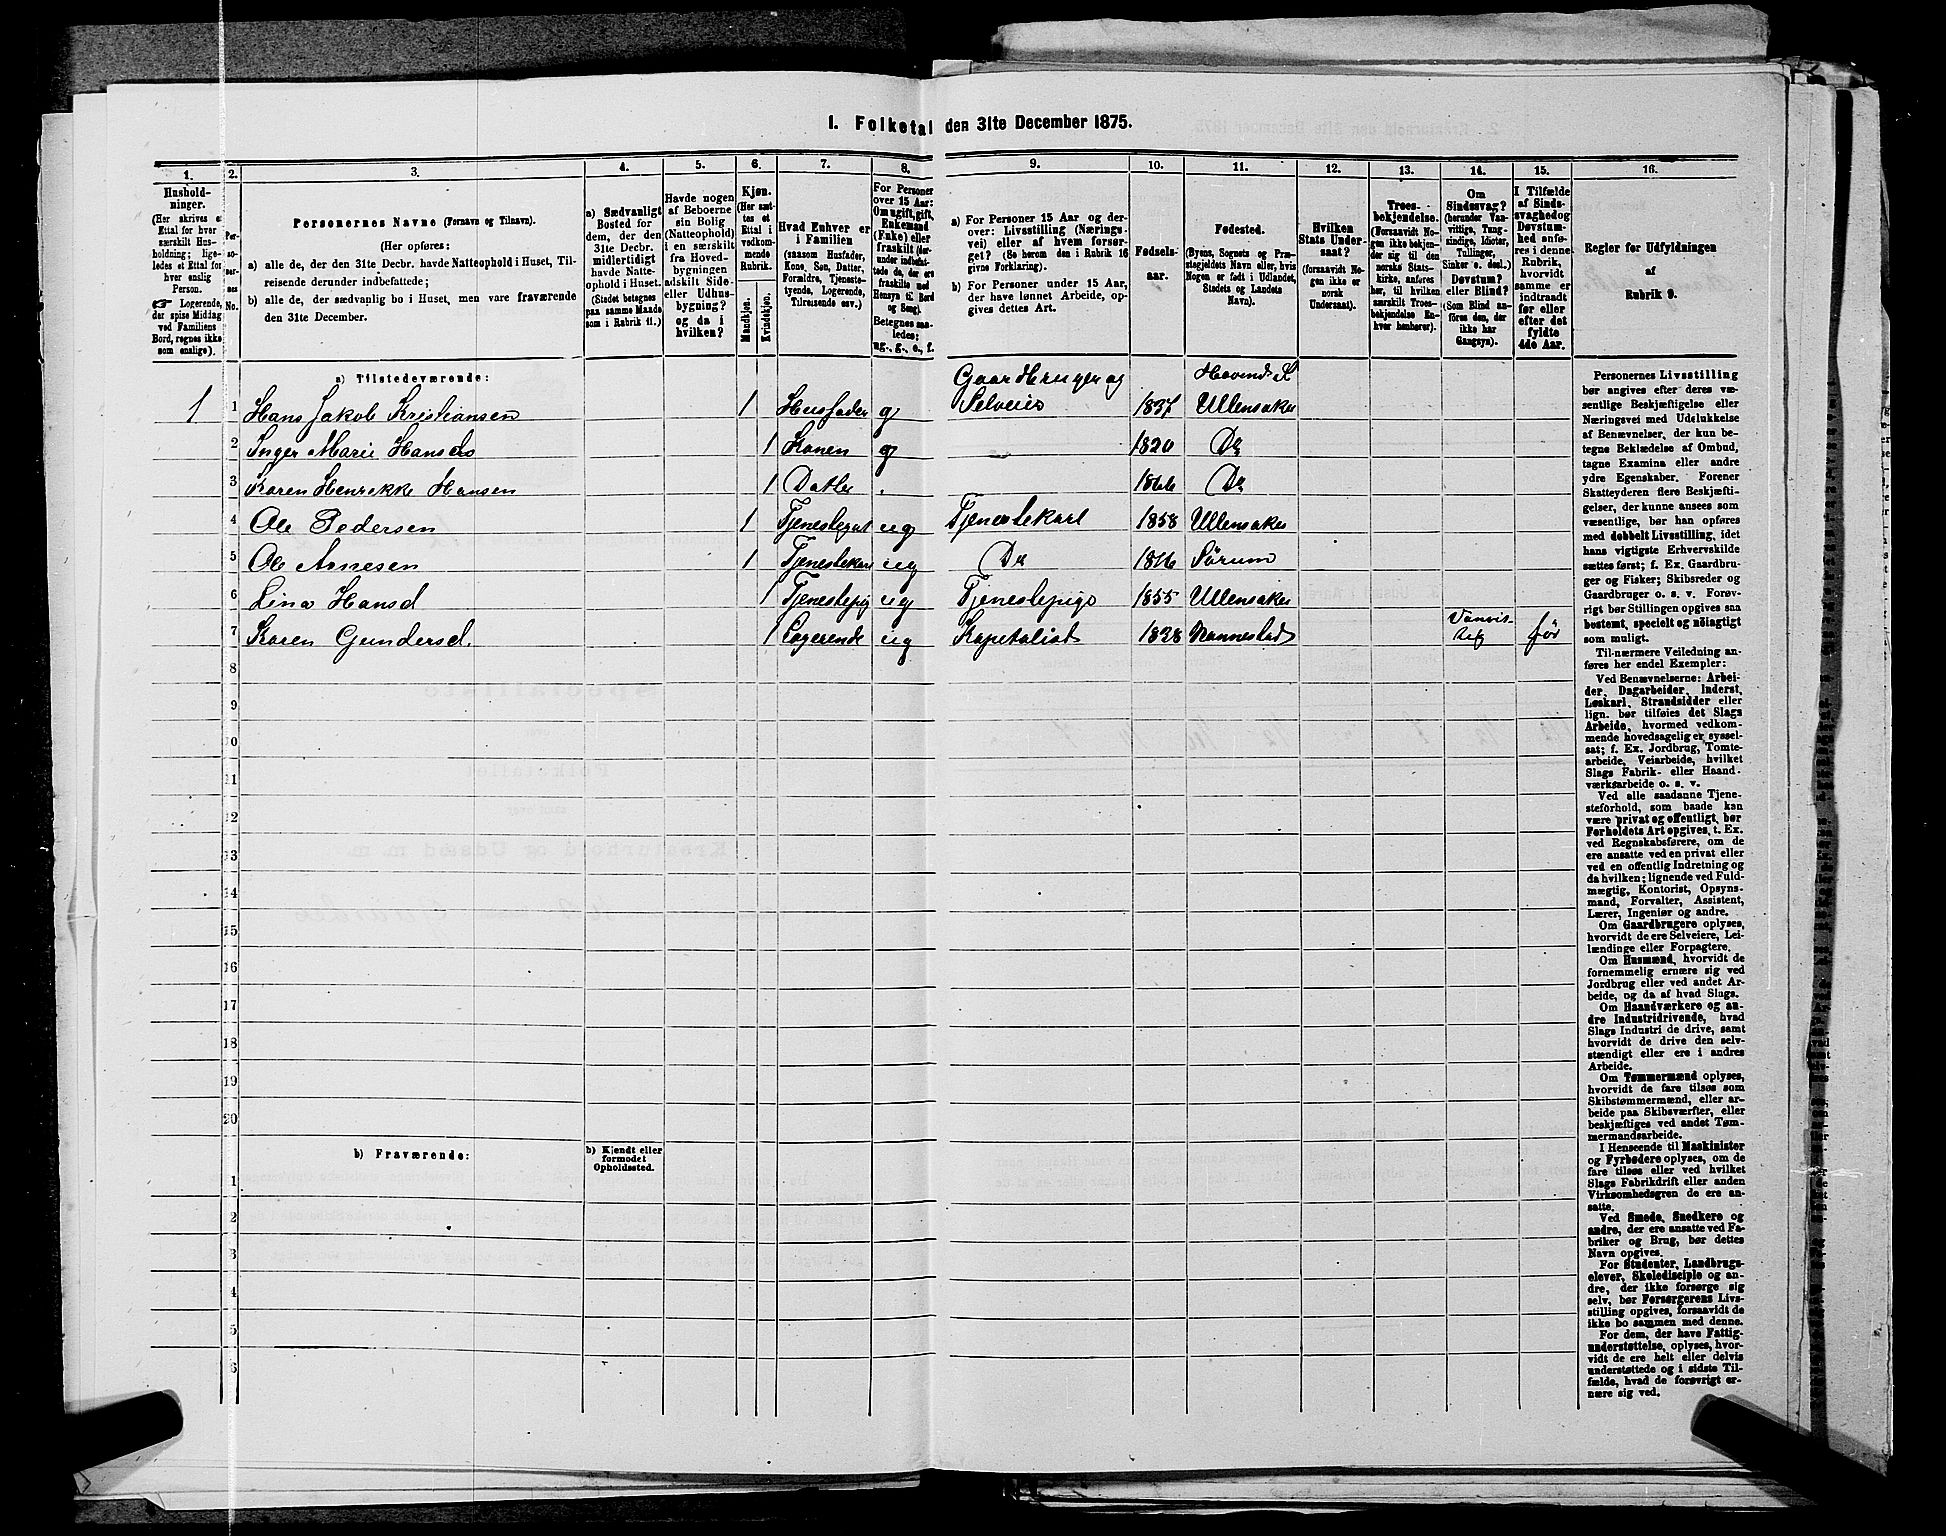 1. Folketal den 31te December 1875.
1.
2.
3.
4.
5.
6.
7.
8.
9.
10.
11.
12.
13.
14.
15.
16.
Hushold-
ninger.
(Her skrives et
Ettal for hver
særskilt Hus-
holdning; lige-
ledes et Ettal for
hver enslig
Person.
☞ Logerende,
der spise Middag
ved Familiens
Bord, regnes ikke
som enslige).
Per-
so-
ner-
nes
No.
Personernes Navne (Fornavn og Tilnavn).
(Her opføres:
a) alle de, der den 31te Decbr. havde Natteophold i Huset, Til-
reisende derunder indbefattede;
b) alle de, der sædvanlig bo i Huset, men vare fraværende
den 31te December.
a) Sædvanligt
Bosted for
dem, der den
31te Decbr.
midlertidigt
havde Natte-
ophold i Huset.
(Stedet betegnes
paa samme Maade
som i Rubrik 11.)
Havde nogen
af Beboerne
sin Bolig
(Natteophold)
i en særskilt
fra Hoved-
bygningen
adskilt Side-
eller Udhus-
bygning?
og da i
hvilken?
Kjøn.
(Her sæt-
tes et
Ettal i
vedkom-
mende
Rubrik.
Mandkjøn.
Kvindekjøn.
Hvad Enhver er
i Familien
(saasom Husfader,
Kone, Søn, Datter,
Forældre, Tjeneste-
tyende, Logerende,
Tilreisende osv.)
For Personer
over 15 Aar:
Om ugift, gift,
Enkemand
(Enke) eller
fraskilt (her-
under indbefat-
tede de, der ere
fraskilte med
Hensyn til Bord
og Seng).
Betegnes saa-
ledes:
ug., g., e., f.
a) For Personer 15 Aar og der-
over: Livsstilling (Nærings-
vei) eller af hvem forsør-
get? (Se herom den i Rubrik 16
givne Forklaring).
b) For Personer under 15 Aar,
der have lønnet Arbeide, op-
gives dettes Art.
Fødsels-
aar.
Fødested.
(Byens, Sognets og Præ-
stegjeldets Navn eller, hvis
Nogen er født i Udlandet,
Stedets og Landets
Navn).
Hvilken
Stats Under-
saat?
(forsaavidt No-
gen ikke er
norsk
Undersaat).
Troes-
bekjendelse.
(Forsaavidt No-
gen ikke bekjen-
der sig til den
norske Stats-
kirke, anføres
her, til hvilken
særskilt Troes-
bekjendelse En-
hver henhører).
Om
Sindssvag?
(herunder Van-
vittige, Tung-
sindige, Idioter,
Tullinger,
Sinker o. desl.)
Døvstum?
eller Blind?
(Som Blind an-
føres den, der
ikke har
Gangsyn).
I Tilfælde
af Sinds-
svaghed og
Døvstum-
hed anfø-
res i denne
Rubrik,
hvorvidt
samme er
indtraadt
før eller
efter det
fyldte
4de Aar.
Regler for Udfyldningen
af
Rubrik 9.
a) Tilstedeværende:
Gaardbruger og
Hovind S
1 1 Hans Jakob Kristiansen 1 Husfader g Selveier 1837 Ullensaker
2 Inger Marie Hansd 1 Konen g 1820 Do
3 Karen Henrikke Hansen 1 Datter 1866 Do
4 Ole Pedersen 1 ug Tjenestekarl 1858 Ullensaker
5 Ole Arnesen 1 Tjenestekarl ug Do Sørum
6 Lina Hansd 1 Tjenestepig ug Tjenestepige 1855 Ullensaker
Vanvit-
7 Karen Gundersd. 1 Logerende ug Kapitalist 1828 Nannestad tig før
8
9
10
11
12
13
14
15
16
17
18
19
20
b) Fraværende:
b) Kjendt eller
formodet
Opholdssted.
1
2
3
4
5
6
Personernes Livsstilling
bør angives efter deres væ-
sentlige Beskjæftigelse eller
Næringsvei med Udelukkelse
af Benævnelser, der kun be-
tegne Beklædelse af Ombud,
tagne Examina eller andre
ydre Egenskaber. Forener
Skatteyderen flere Beskjæfti-
gelser, der kunne ansees som
væsentlige, bør han opføres
med dobbelt Livsstilling, idet
hans vigtigste Erhvervskilde
sættes først; f. Ex. Gaardbru-
ger og Fisker; Skibsreder og
Gaardbruger o. s. v. Forøv-
rigt bør Stillingen opgives saa
bestemt, specielt og nøiagtigt
som muligt.
Til nærmere Veiledning an-
føres her endel Exempler:
Ved Benævnelserne: Arbei-
der, Dagarbeider, Inderst,
Løskarl, Strandsidder eller
lign. bør tilføies det Slags
Arbeide, hvormed vedkom-
mende hovedsagelig er syssel-
sat; f. Ex. Jordbrug, Tomte-
arbeide, Veiarbeide, hvilket
Slags Fabrik- eller Haand-
værksarbeide o. s. v.
Ved alle saadanne Tjene-
steforhold, som baade kan
være privat og offentligt, bør
Forholdets Art opgives, t. Ex.
ved Regnskabsførere, om de
ere ansatte ved en privat eller
ved en offentlig Indretning og
da hvilken; lignende ved Fuld-
mægtig, Kontorist, Opsyns-
mand, Forvalter, Assistent,
Lærer, Ingeniør og andre.
Om Gaardbrugere oplyses,
hvorvidt de ere Selveiere, Lei-
lændinge eller Forpagtere.
Om Husmænd, hvorvidt de
fornemmelig ernære sig ved
Jordbrug eller ved andet Ar-
beide, og da af hvad Slags.
Om Haandværkere og an-
dre Industridrivende, hvad
Slags Industri de drive, samt
hvorvidt de drive den selv-
stændigt eller ere i andres
Arbeide.
Om Tømmermænd oplyses,
hvorvidt de fare tilsøs som
Skibstømmermænd, eller ar-
beide paa Skibsværfter, eller
beskjæftiges ved andet Tøm-
mermandsarbeide.
I Henseende til Maskinister
og Fyrbødere oplyses, om de
fare tilsøs eller ved hvilket
Slags Fabrikdrift eller anden
Virksomhedsgren de ere an-
satte.
Ved Smede, Snedkere og
andre, der ere ansatte ved Fa-
briker og Brug, bør dettes
Navn opgives.
For Studenter, Landbrugs-
elever, Skoledisciple og an-
dre, der ikke forsørge sig
selv, bør Forsørgerens Livs-
stilling opgives, forsaavidt de
ikke bo sammen med denne.
For dem, der have Fattig-
understøttelse, oplyses, hvor-
vidt de ere helt eller delvis
understøttede og i sidste Til-
fælde, hvad de forøvrigt er-
nære sig ved.